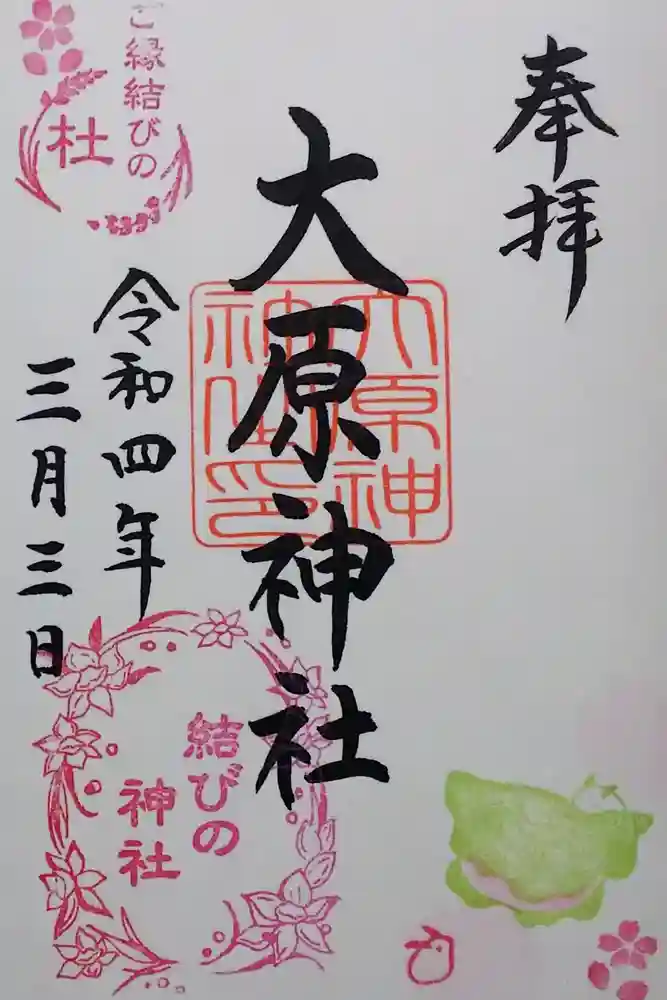 奉拝
大原神社
大原神
社御印
令和四年
三月三日
ご縁結びの
杜
結びの
神社